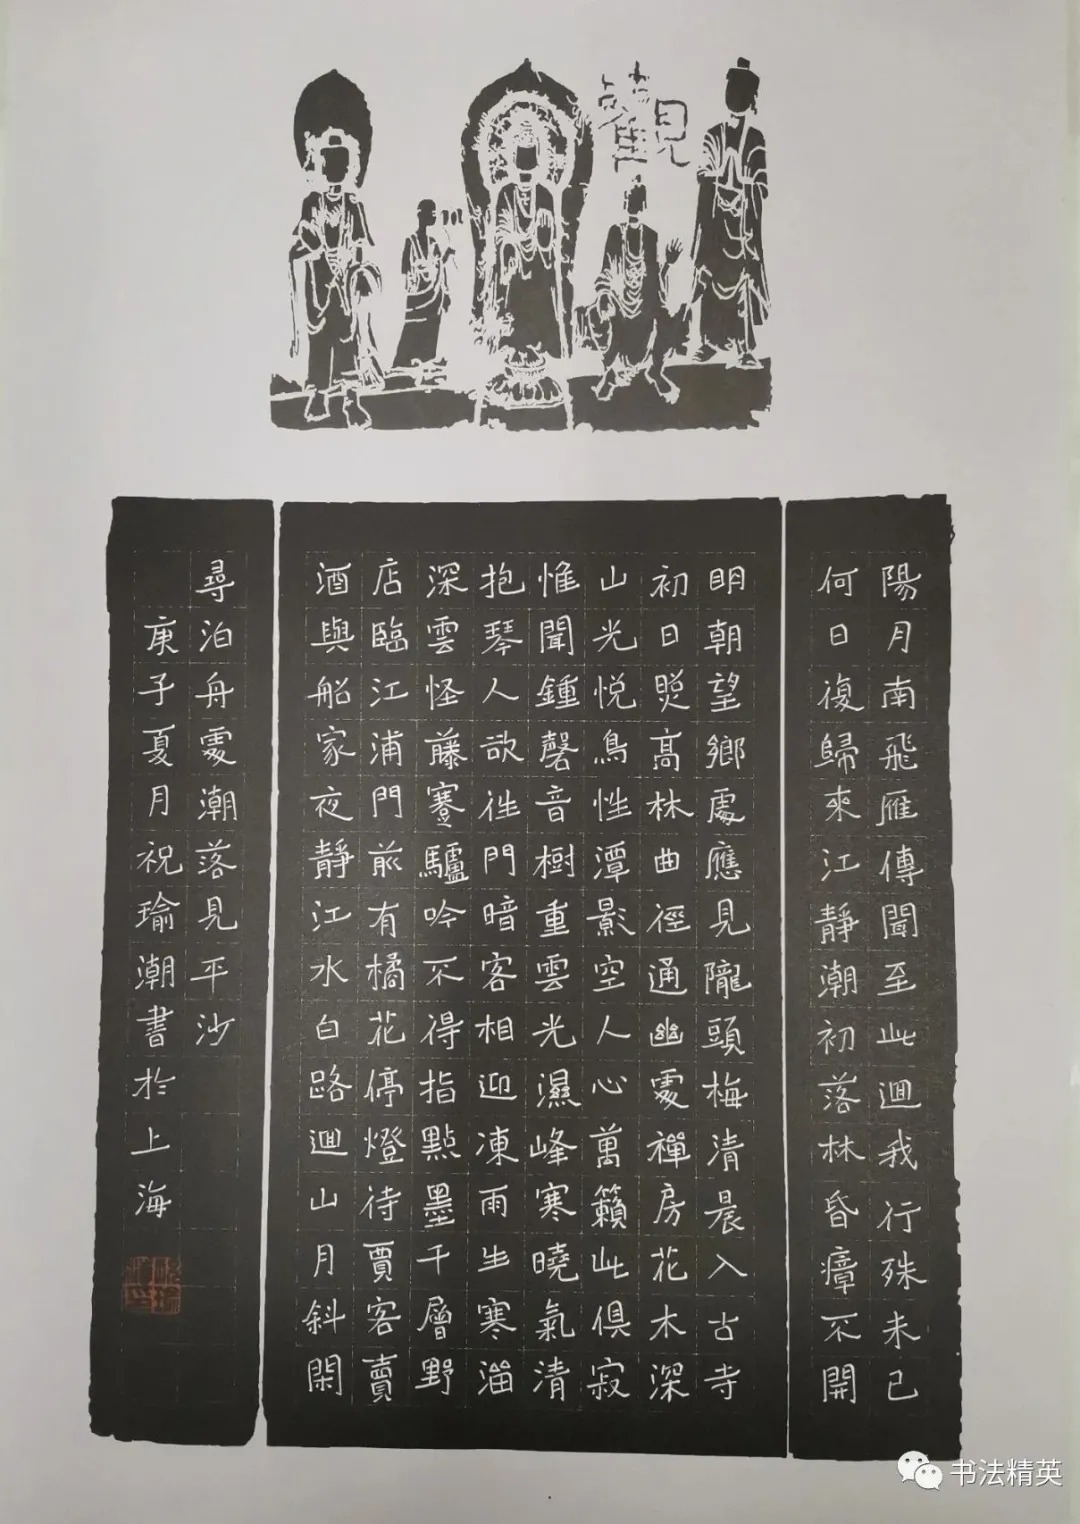 觀
陽月南飛雁傳聞至此迴我行殊未已
何日復歸來江靜潮初落林昏瘴不開
明朝望鄉處應見隴頭梅清晨入古寺
初日照高林曲徑通幽處禪房花木深
山光悦鳥性潭影空人心萬籟此俱寂
惟聞鍾磬音樹重雲光濕峰寒曉氣清
抱琴人欲往門暗客相迎凍雨生寒溜
深雲怪藤蹇驢吟不得指點墨千層野
店臨江浦門前有橘花停燈待賈客賣
酒與船家夜靜江水白路迴山月斜閑
尋泊舟處潮落見平沙
庚子夏月祝瑜潮書於上海
书法精英